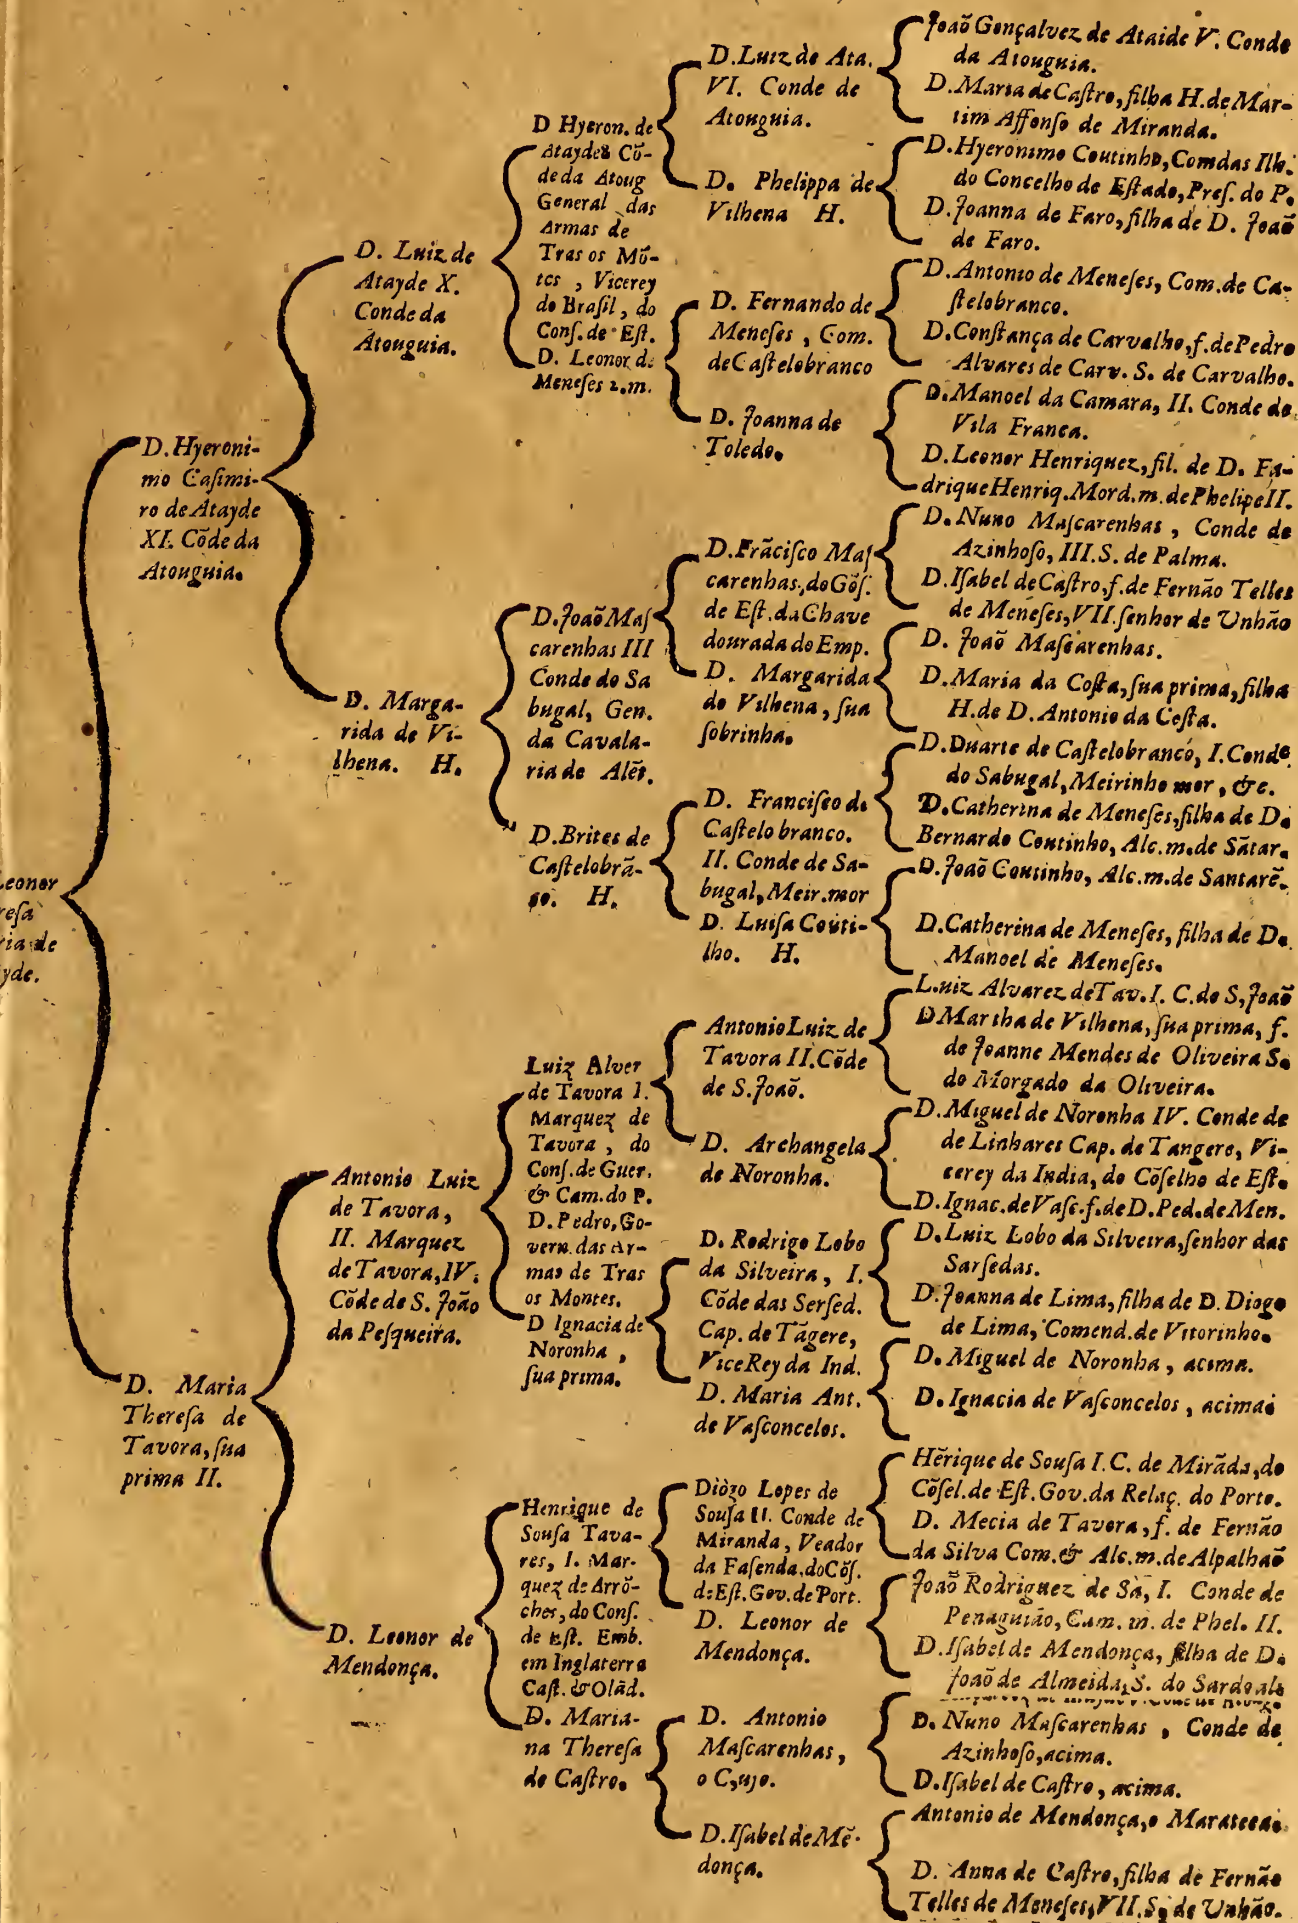 Leonor
resa
ria de
yde.
D. Hyeroni-
mo Casimi-
ro de Atayde
XI. Cõde da
Atouguia.
D. Maria
Theresa de
Tavora, sua
prima II.
D. Luiz de
Atayde X.
Conde da
Atouguia.
D. Marga-
rida de Vi-
lhena. H.
Antonio Luiz
de Tavora,
II. Marquez
de Tavora, IV.
Cõde de S. João
da Pesqueira.
D. Leonor de
Mendonça.
D Hyeron. de
Ataydes Cõ-
de da Atoug
General das
Armas de
Tras os Mõ-
tes, Vicerey
do Brasil, do
Cons. de Est.
D. Leonor de
Meneses 2. m.
D. João Mas
carenhas III
Conde do Sa
bugal, Gen.
da Cavala-
ria de Alẽt.
D. Brites de
Castelobrã-
co. H.
Luiz Alver
de Tavora I.
Marquez de
Tavora, do
Cons. de Guer.
& Cam. do P.
D. Pedro, Go-
vern. das Ar-
mas de Tras
os Montes.
D Ignacia de
Noronha,
sua prima.
Henrique de
Sousa Tava-
res, I. Mar-
quez de Arrõ-
ches, do Cons.
de Est. Emb.
em Inglaterra
Cast. & Olãd.
D. Maria-
na Theresa
de Castro.
D. Luiz de Ata.
VI. Conde de
Atouguia.
D. Phelippa de
Vilhena H.
D. Fernando de
Meneses, Com.
de Castelobranco
D. Joanna de
Toledo.
D. Frãcisco Mas
carenhas, do Cõs.
de Est. da Chave
dourada do Emp.
D. Margarida
de Vilhena, sua
sobrinha.
D. Francisco de
Castelo branco.
II. Conde de Sa-
bugal, Meir. mor
D. Luisa Couti-
lho. H.
Antonio Luiz de
Tavora II. Cõde
de S. João.
D. Archangela
de Noronha.
D. Rodrigo Lobo
da Silveira, I.
Cõde das Serfed.
Cap. de Tãgere,
Vice Rey da Ind.
D. Maria Ant.
de Vasconcelos.
Diogo Lopes de
Sousa II. Conde de
Miranda, Veador
da Fasenda, do Cõs.
de Est. Gov. de Port.
D. Leonor de
Mendonça.
D. Antonio
Mascarenhas,
o Cujo.
D. Isabel de Mẽ-
donça.
João Gonçalvez de Ataide V. Conde
da Atouguia.
D. Maria de Castro, filha H. de Mar-
tim Affonso de Miranda.
D. Hyeronimo Coutinho, Com das Ilh.
do Concelho de Estado, Pres. do P.
D. Joanna de Faro, filha de D. João
de Faro.
D. Antonio de Meneses, Com. de Ca-
stelobranco.
D. Constança de Carvalho, f. de Pedro
Alvares de Carv. S. de Carvalho.
D. Manoel da Camara, II. Conde de
Vila Franca.
D. Leonor Henriquez, fil. de D. Fa-
drique Henriq. Mord. m. de Phelipe II.
D. Nuno Mascarenhas, Conde de
Azinhoso, III. S. de Palma.
D. Isabel de Castro, f. de Fernão Telles
de Meneses, VII. senhor de Unhão
D. João Mascarenhas.
D. Maria da Costa, sua prima, filha
H. de D. Antonio da Costa.
D. Duarte de Castelobranco, I. Conde
do Sabugal, Meirinho mor, &c.
D. Catherina de Meneses, filha de D.
Bernardo Coutinho, Alc. m. de Sãtar.
D. João Coutinho, Alc. m. de Santarẽ.
D. Catherina de Meneses, filha de D.
Manoel de Meneses.
Luiz Alvarez de Tav. I. C. de S. João
D Martha de Vilhena, sua prima, f.
de Joanne Mendes de Oliveira S.
do Morgado da Oliveira.
D. Miguel de Noronha IV. Conde de
de Linhares Cap. de Tangere, Vi-
cerey da India, do Cõselho de Est.
D. Ignac. de Vasc. f. de D. Ped. de Men.
D. Luiz Lobo da Silveira, senhor das
Sarsedas.
D. Joanna de Lima, filha de D. Diogo
de Lima, Comend. de Vitorinho.
D. Miguel de Noronha, acima.
D. Ignacia de Vasconcelos, acima
Hẽrique de Sousa I. C. de Mirãda, do
Cõsel. de Est. Gov. da Relaç. do Porto.
D. Mecia de Tavora, f. de Fernão
da Silva Com. & Alc. m. de Alpalhaõ
João Rodriguez de Sa, I. Conde de
Penaguião, Cam. m. de Phel. II.
D. Isabel de Mendonça, filha de D.
João de Almeida, S. do Sardoal
D. Nuno Mascarenhas, Conde de
Azinhoso, acima.
D. Isabel de Castro, acima.
Antonio de Mendonça, o Marateca
D. Anna de Castro, filha de Fernão
Telles de Meneses, VII. S. de Unhão.